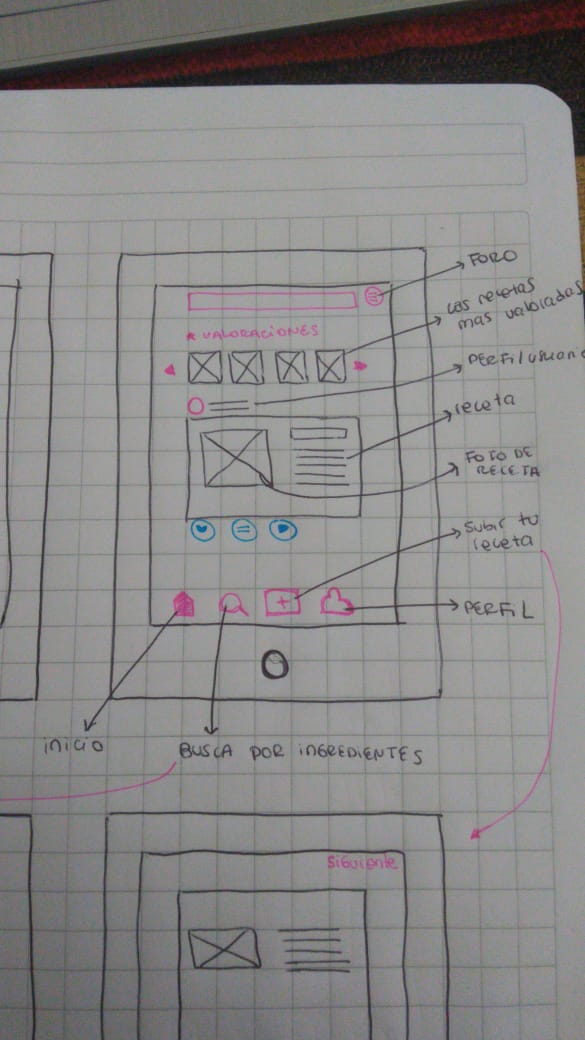 FORO
Las recetas
mas valoradas
★ VALORACIONES
PERFIL usuario
receta
FOTO DE
RECETA
Subir tu
receta
PERFIL
inicio
BUSCA POR INGREDIENTES
Siguiente